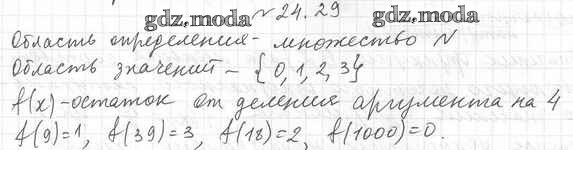 gdz.moda № 24.29 gdz.moda
Область определения - множество N
Область значений - {0, 1, 2, 3}
f(x) - остаток от деления аргумента на 4
f(9)=1, f(39)=3, f(18)=2, f(1000)=0.